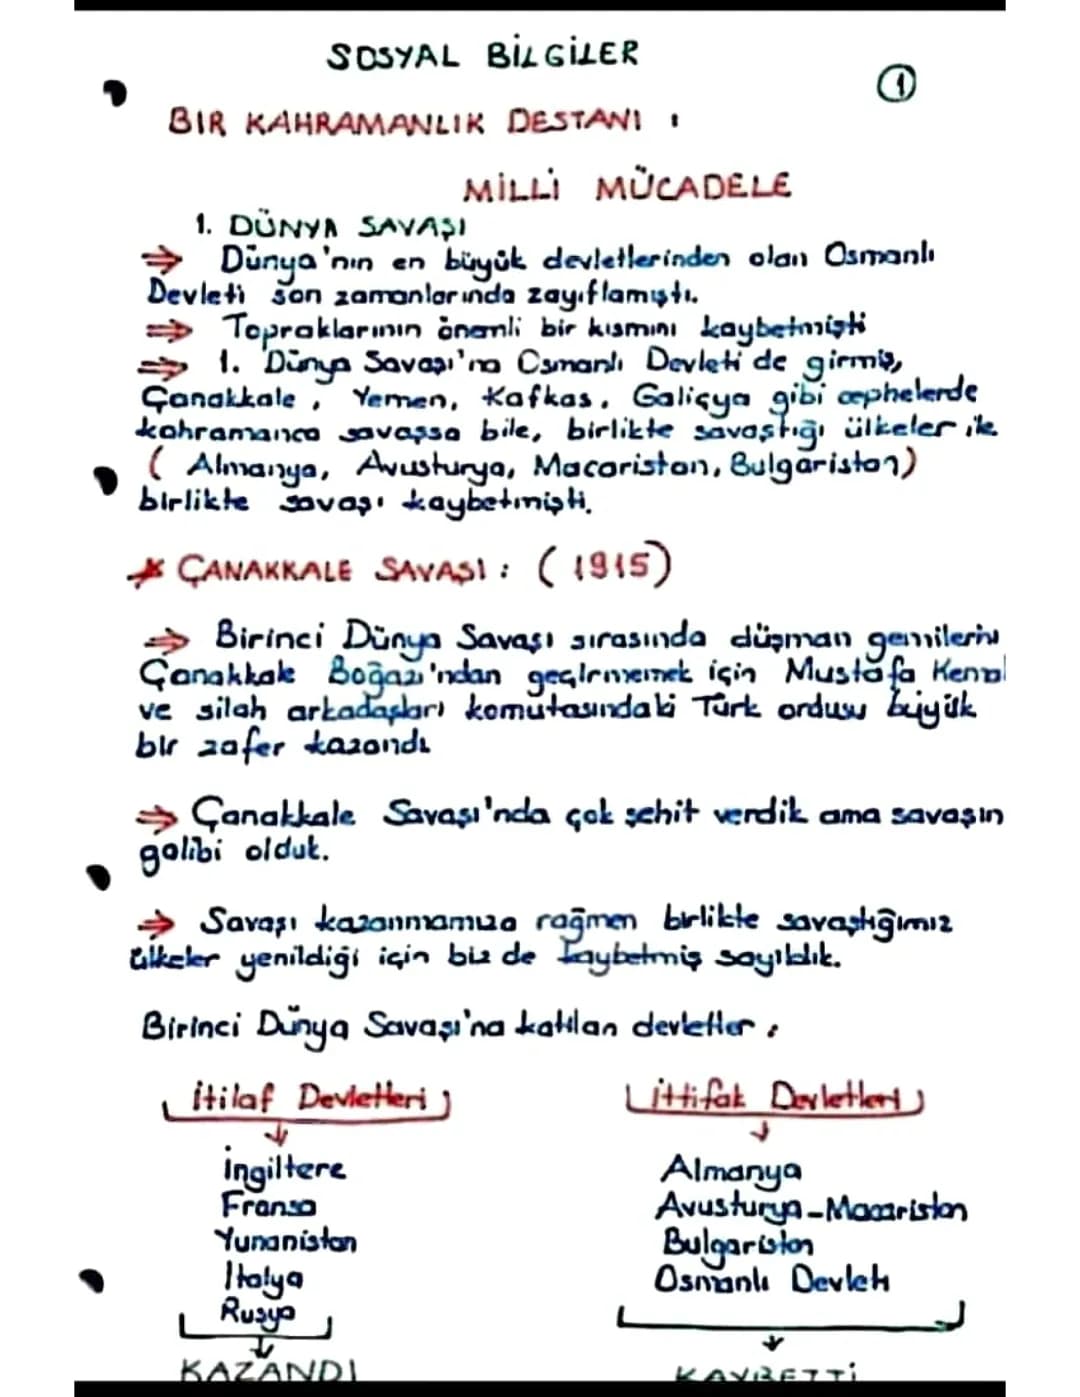 SOSYAL BİLGİLER
1
BIR KAHRAMANLIK DESTANI :
MİLLİ MÜCADELE
1. DÜNYA SAVAŞI
⇒ Dünya'nın en büyük devletlerinden olan Osmanlı
Devleti son zamanlarında zayıflamıştı.
⇒ Topraklarının önemli bir kısmını kaybetmişti
⇒ 1. Dünya Savaşı'na Osmanlı Devleti de girmiş,
Çanakkale, Yemen, Kafkas, Galiçya gibi cephelerde
kahramanca savaşsa bile, birlikte savaştığı ülkeler ile
( Almanya, Avusturya, Macaristan, Bulgaristan)
birlikte savaşı kaybetmişti.
* ÇANAKKALE SAVAŞI : ( 1915)
⇒ Birinci Dünya Savaşı sırasında düşman gemilerini
Çanakkale Boğazı'ndan geçirmemek için Mustafa Kemal
ve silah arkadaşları komutasındaki Türk ordusu büyük
bir zafer kazandı
⇒ Çanakkale Savaşı'nda çok şehit verdik ama savaşın
galibi olduk.
⇒ Savaşı kazanmamıza rağmen birlikte savaştığımız
ülkeler yenildiği için biz de kaybetmiş sayıldık.
Birinci Dünya Savaşı'na katılan devletler :
İtilaf Devletleri
İngiltere
Fransa
Yunanistan
İtalya
Rusya
KAZANDI
İttifak Devletleri
Almanya
Avusturya-Macaristan
Bulgaristan
Osmanlı Devleti
KAYBETTİ